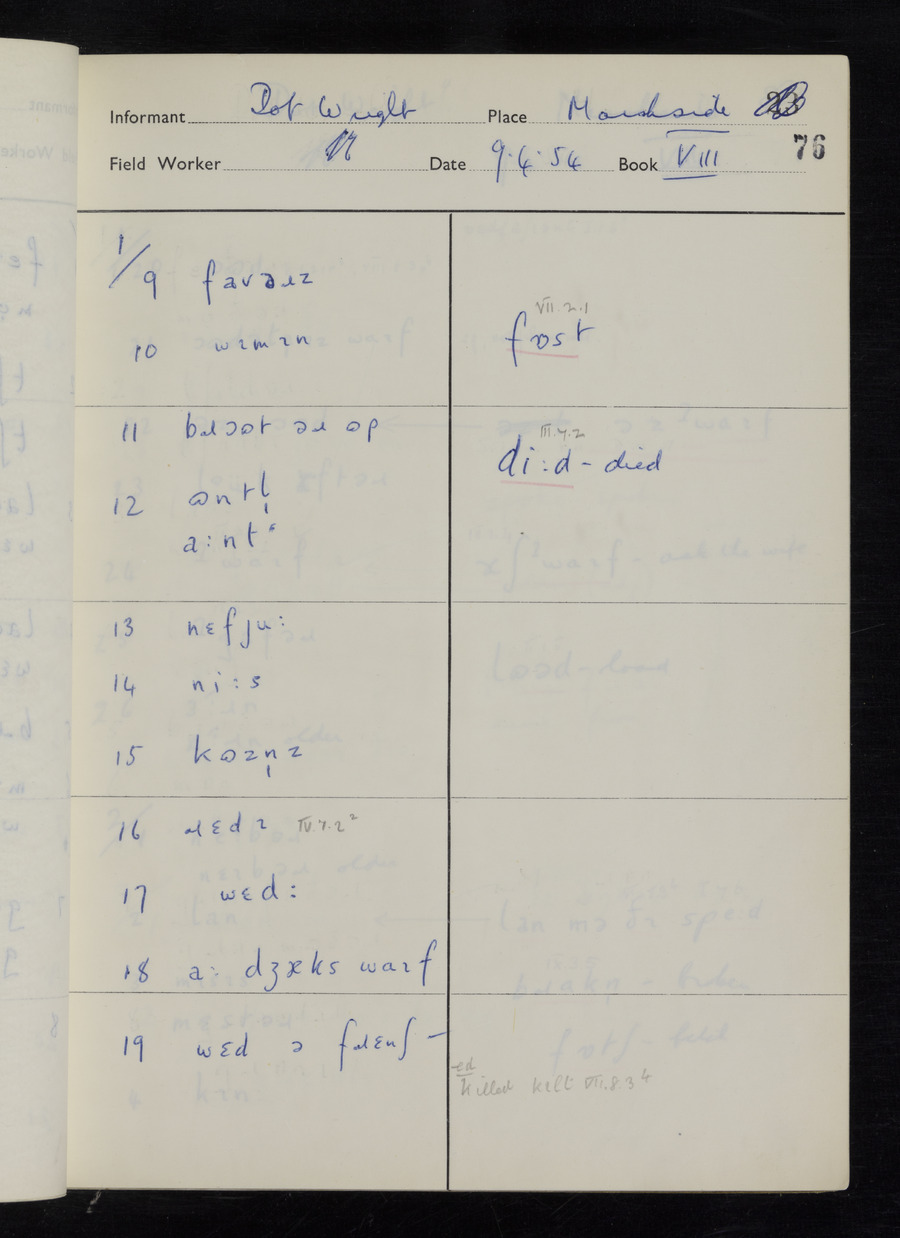 Informant Dot Wright Place Marshside
76
Field Worker Date 9.4.54 Book VIII
1/9 favəɹz
10 wɪmɪn
VII.2.1
fɒst
11 bɹɔɒt əɹ ɒp
III.4.2
di:d - died
12 ɒntl̩
a:ntˢ
13 nɛfju:
14 ni:s
15 kɒzn̩z
16 ɹɛdɪ IV.7.2²
17 wɛd:
18 a: dʒæks waɪf
19 wɛd ə fɹɛnʃ –
-ed
killed kɪlt VII.8.3⁴